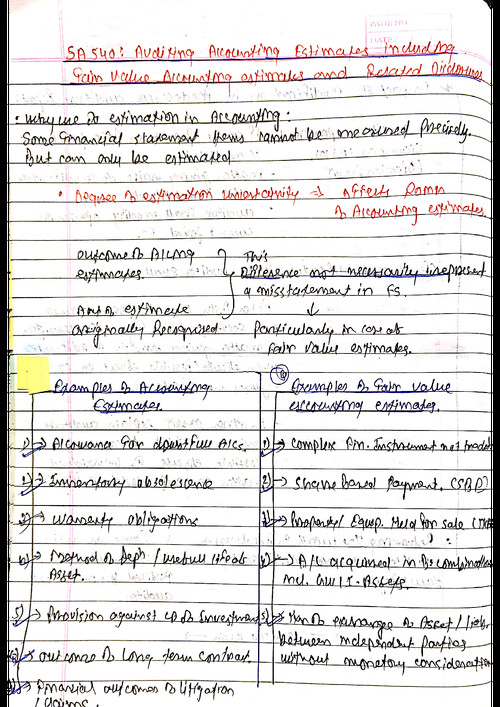 PAGE NO.
DATE:
SA 540: Auditing Accounting Estimates including
Fair Value Accounting estimates and Related Disclosures
• Why we do estimation in Accounting:
Some financial statement items cannot be measured precisely.
But can only be estimated.
• Degree of estimation uncertainity → affects Romm
of Accounting estimates.
outcome of A/cing
estimates.
Amt of estimate
originally Recognised.
This
Difference not necessarily represent
a misstatement in FS.
↓
Particularly in case of
fair value estimates.
Examples of Accounting
Estimates.
1) → Allowance for doubtfull A/cs.
2) → Inventory obsolescence
3) → Warranty obligations
4) → Method of Depn / usefull life of
Asset.
5) → Provision against of Investment
6) → outcome of Long term contract.
7) → Financial outcomes of litigation
/ claims.
Examples of Fair value
accounting estimates.
1) → Complex Fin. Instrument not traded
2) → Share based Payment. (SBP)
3) → Property/ Equip. Held for sale
4) → A/L acquired in Bs. combination
incl. G.W / I. Assets.
5) → of exchanges of Asset / liab.
between independent parties
without monetary consideration